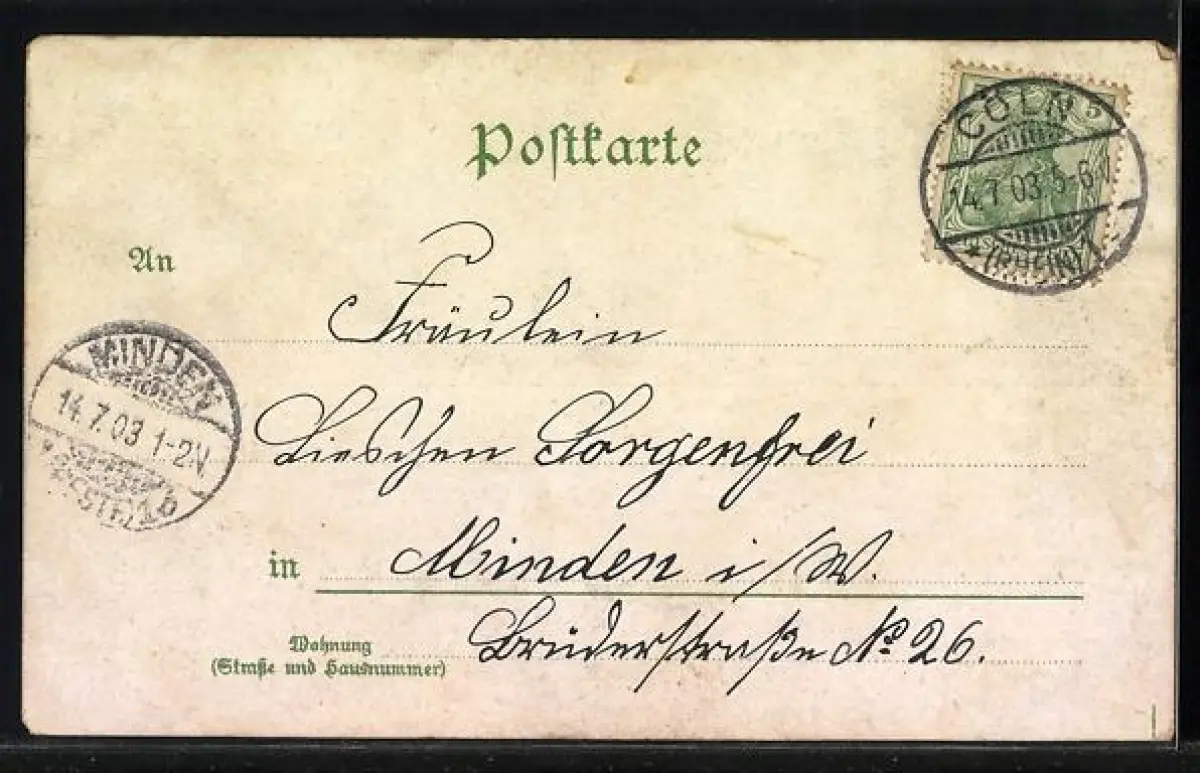 Postkarte
5
CÖLN
14.7.03 5-6 V
* (RHEIN) 1
An
Fräulein
MINDEN
14.7.03 1-2N
Lieschen Sorgenfrei
in Minden i/W.
Wohnung
(Straße und Hausnummer)
Brüderstraße No. 26.